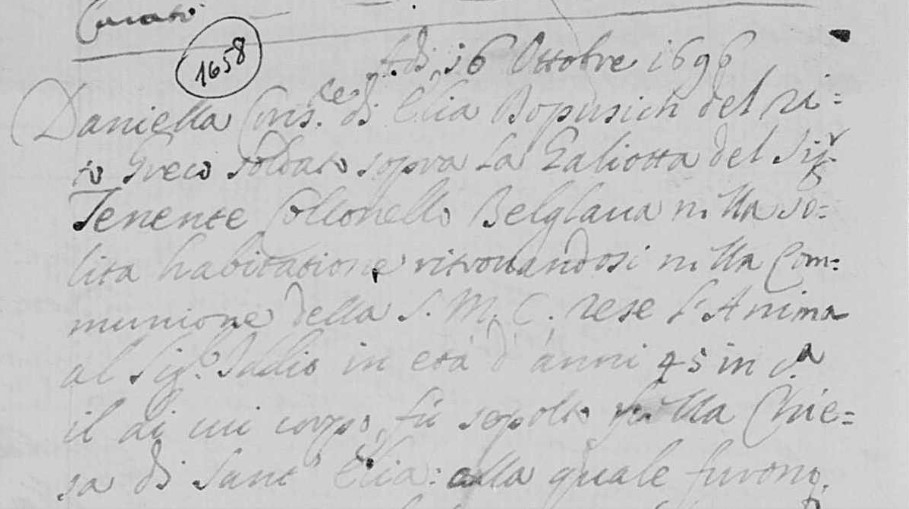 Curato
1658
Adi 16 Ottobre 1696
Daniella Cons.te di Elia Bopusich del ri=
to Greco soldato sopra La Galiotta del Sigr.
Tenente Collonello Belglaua nella so=
lita habitatione ritrouandosi nella Com=
munione della S. M. C. rese L'Anima
al Sigr. Iddio in età d'anni 45 in ca
il di cui corpo fù sepolto nella Chie=
sa di Sant' Elia: alla quale furono